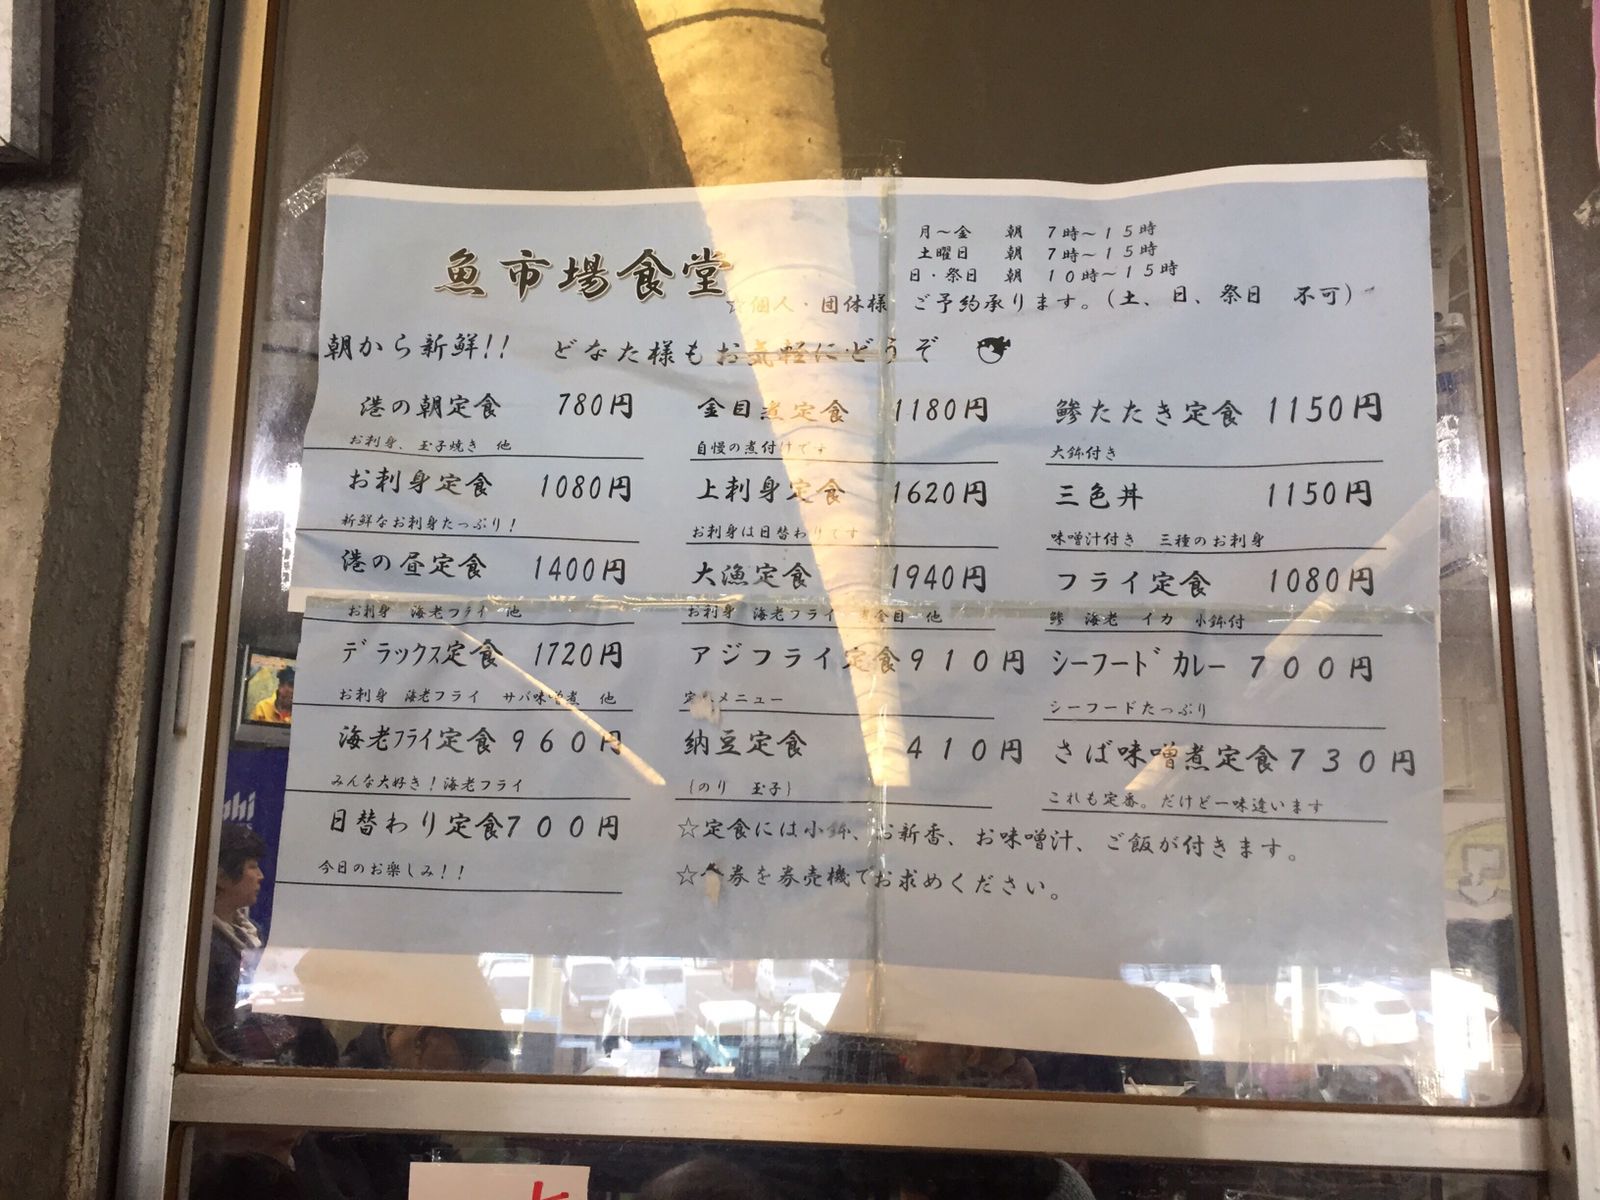 魚市場食堂
月～金 朝 7時～15時
土曜日 朝 7時～15時
日・祭日 朝 10時～15時
☆個人・団体様 ご予約承ります。(土、日、祭日 不可)
朝から新鮮!! どなた様もお気軽にどうぞ
港の朝定食 780円
お刺身、玉子焼き 他
お刺身定食 1080円
新鮮なお刺身たっぷり!
港の昼定食 1400円
お刺身 海老フライ 他
デラックス定食 1720円
お刺身 海老フライ サバ味噌煮 他
海老フライ定食 960円
みんな大好き!海老フライ
日替わり定食 700円
今日のお楽しみ!!
金目煮定食 1180円
自慢の煮付けです
上刺身定食 1620円
お刺身は日替わりです
大漁定食 1940円
お刺身 海老フライ 金目 他
アジフライ定食 910円
メニュー
納豆定食 410円
(のり 玉子)
鯵たたき定食 1150円
大鉢付き
三色丼 1150円
味噌汁付き 三種のお刺身
フライ定食 1080円
鯵 海老 イカ 小鉢付
シーフードカレー 700円
シーフードたっぷり
さば味噌煮定食 730円
これも定番。だけど一味違います
☆定食には小鉢、お新香、お味噌汁、ご飯が付きます。
☆券を券売機でお求めください。